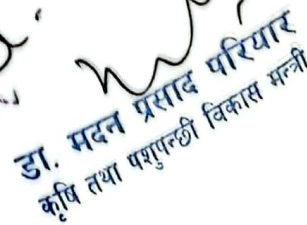 डा. मदन प्रसाद परियार
कृषि तथा पशुपन्छी विकास मन्त्री